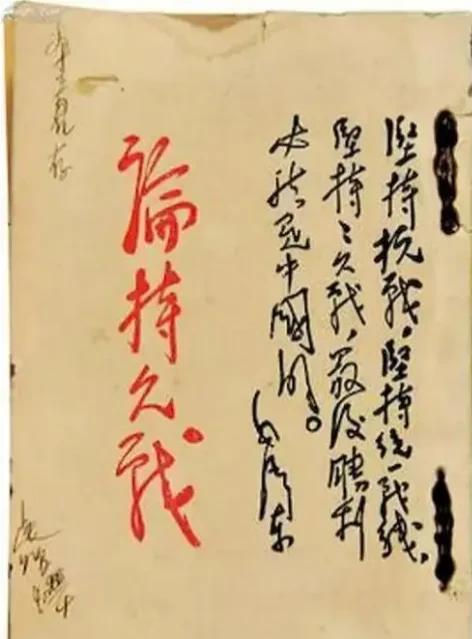 堅持抗戰,堅持統一戰綫,
堅持〻久戰,最後勝利
必然是中國的。
毛澤東
論持久戰。